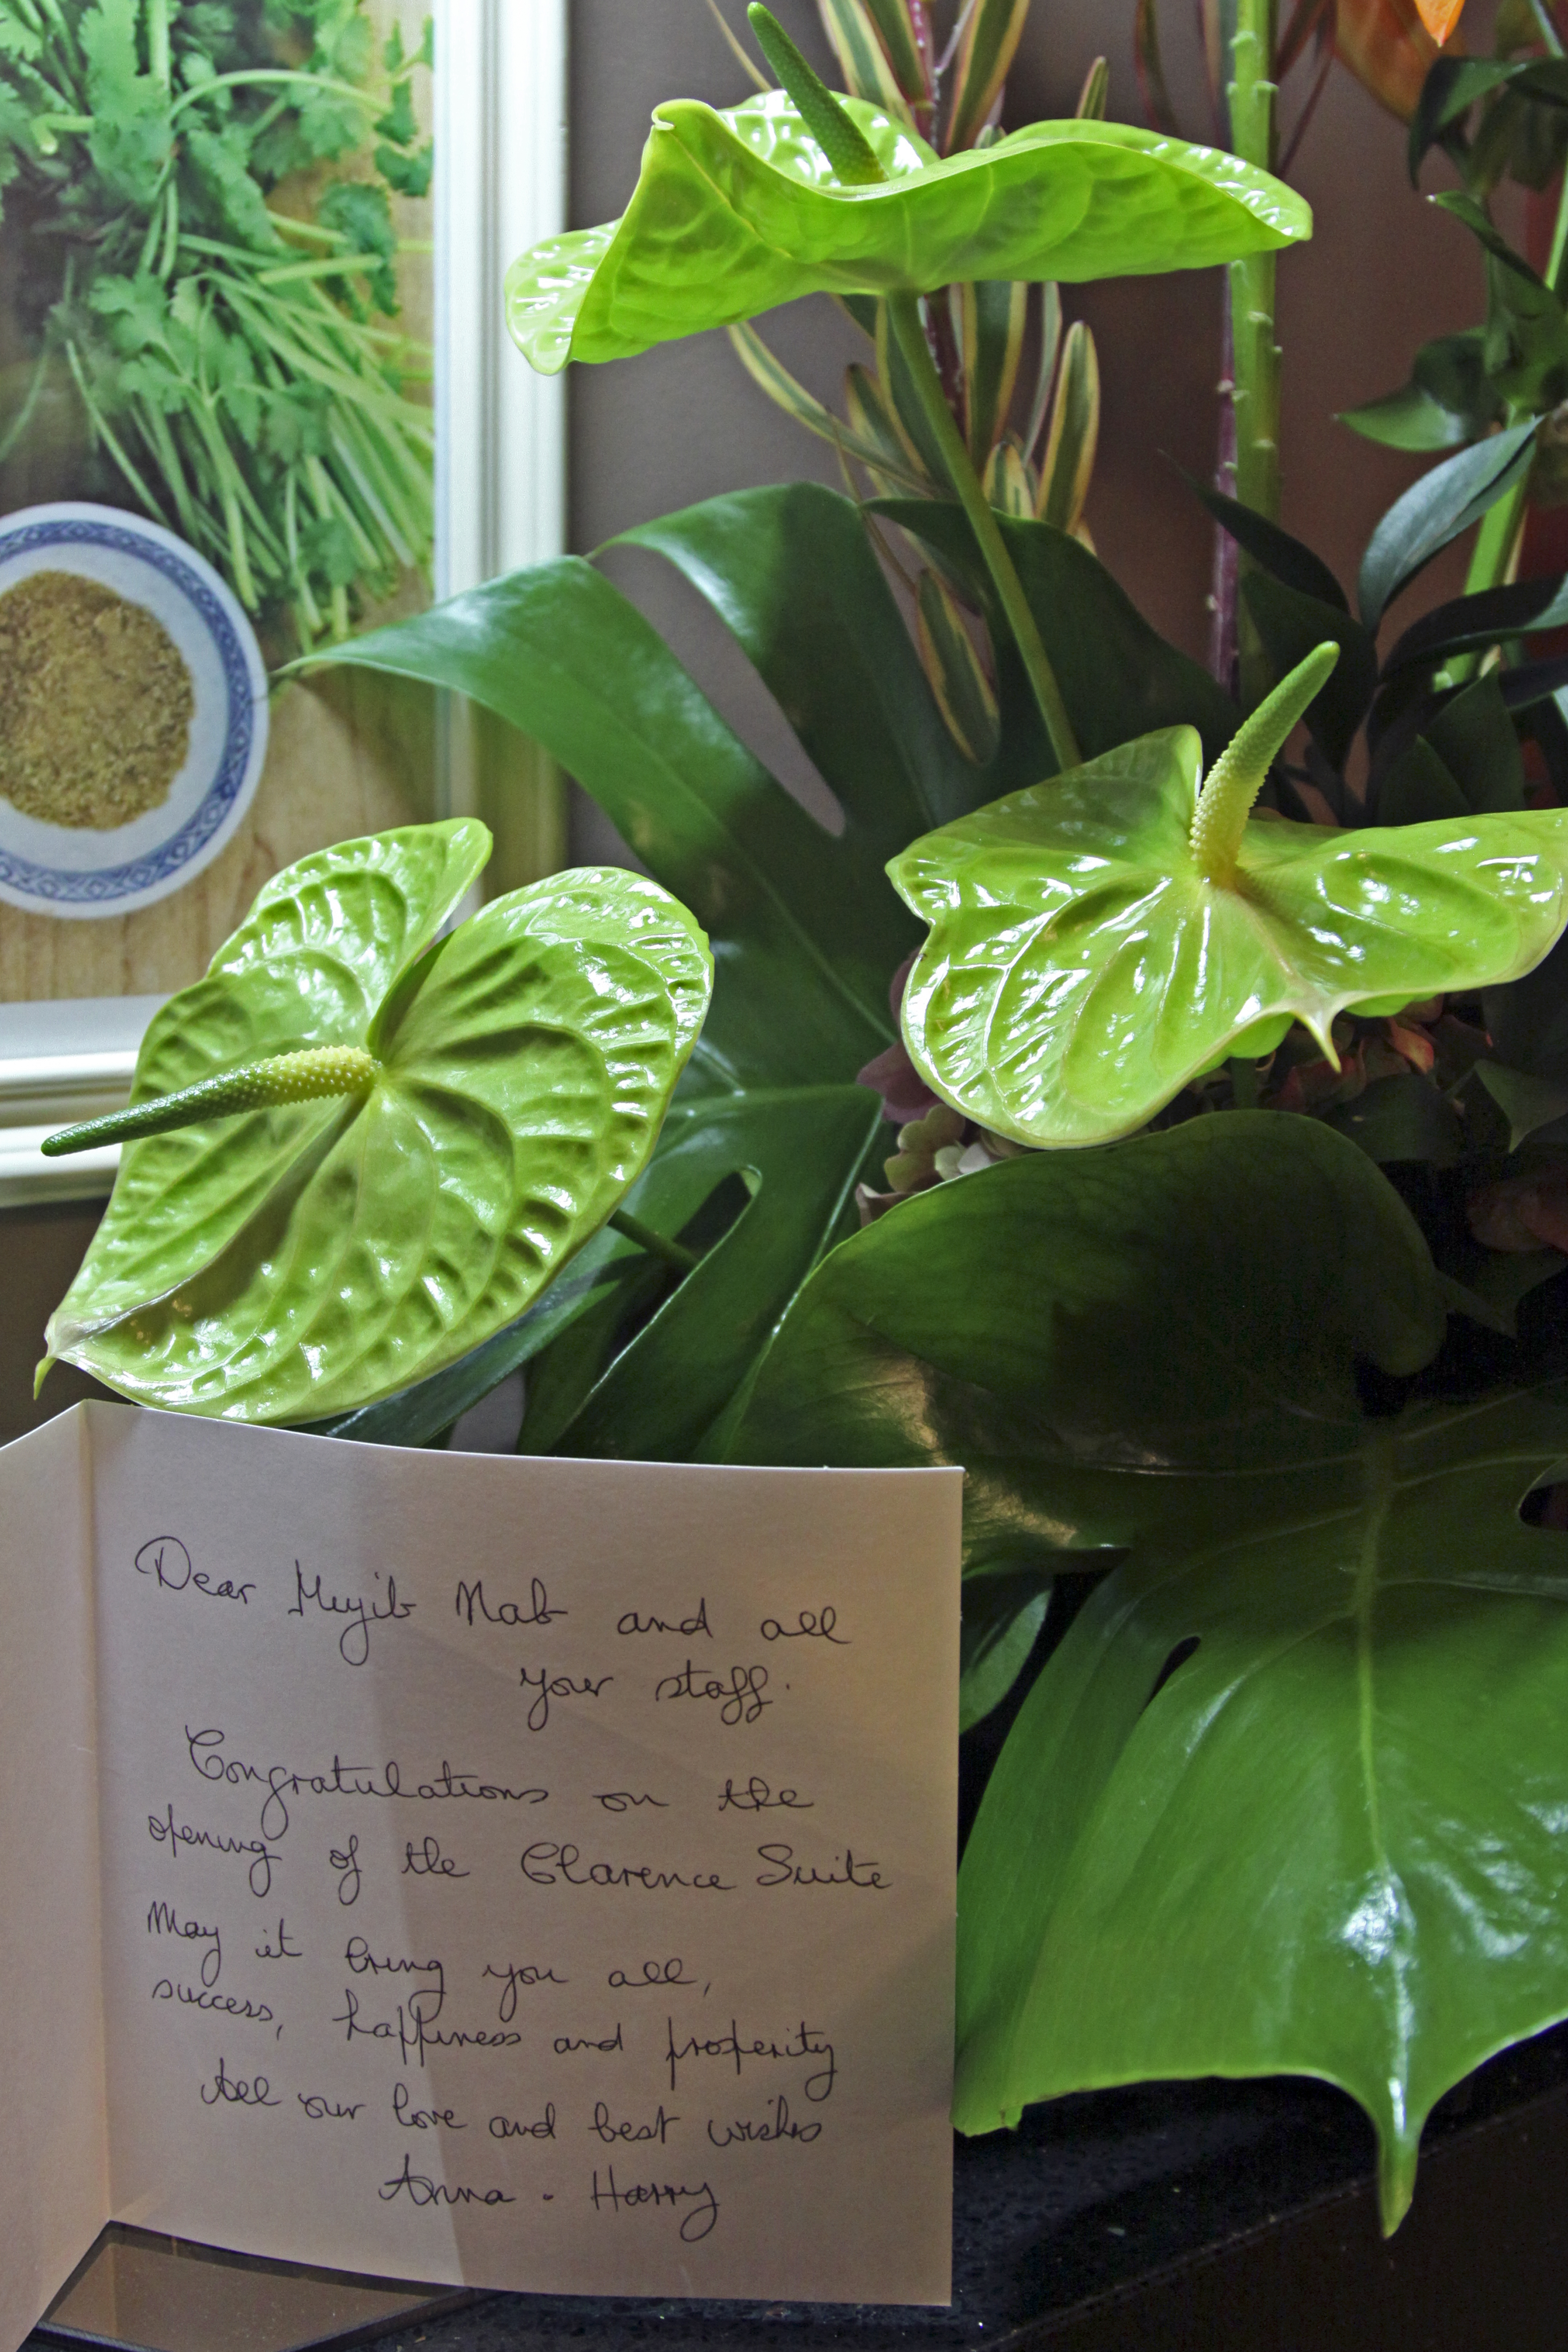 Dear Mujib Nab and all
your staff.
Congratulations on the
opening of the Clarence Suite
May it bring you all,
success, happiness and properity
All our love and best wishes
Anna - Harry